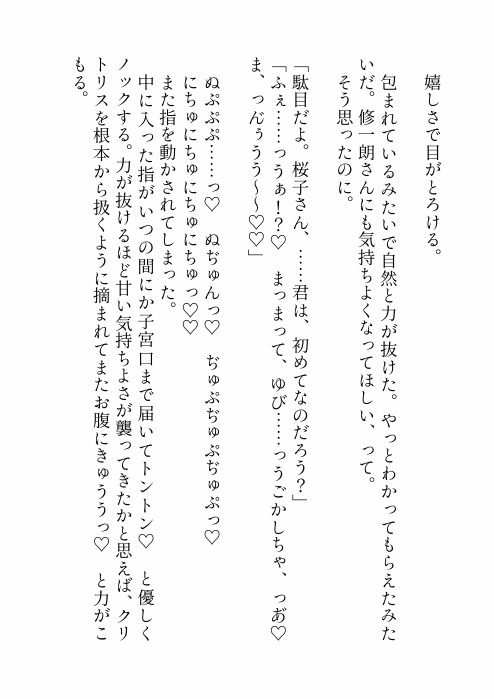 嬉しさで目がとろける。
包まれているみたいで自然と力が抜けた。やっとわかってもらえたみた
いだ。修一朗さんにも気持ちよくなってほしい、って。
そう思ったのに。
「駄目だよ。桜子さん、……君は、初めてなのだろう?」
「ふぇ……っうぁ!?♡　まっまって、ゆび……っうごかしちゃ、っあ゙♡
ま、っん゙ぅうう～～♡♡」
ぬぷぷぷ……っ♡　ぬぢゅんっ♡　ぢゅぷぢゅぷぢゅぷっ♡
にちゅにちゅにちゅにちゅっ♡♡
また指を動かされてしまった。
中に入った指がいつの間にか子宮口まで届いてトントン♡　と優しく
ノックする。力が抜けるほど甘い気持ちよさが襲ってきたかと思えば、クリ
トリスを根本から扱くように摘まれてまたお腹にきゅううっ♡　と力がこ
もる。